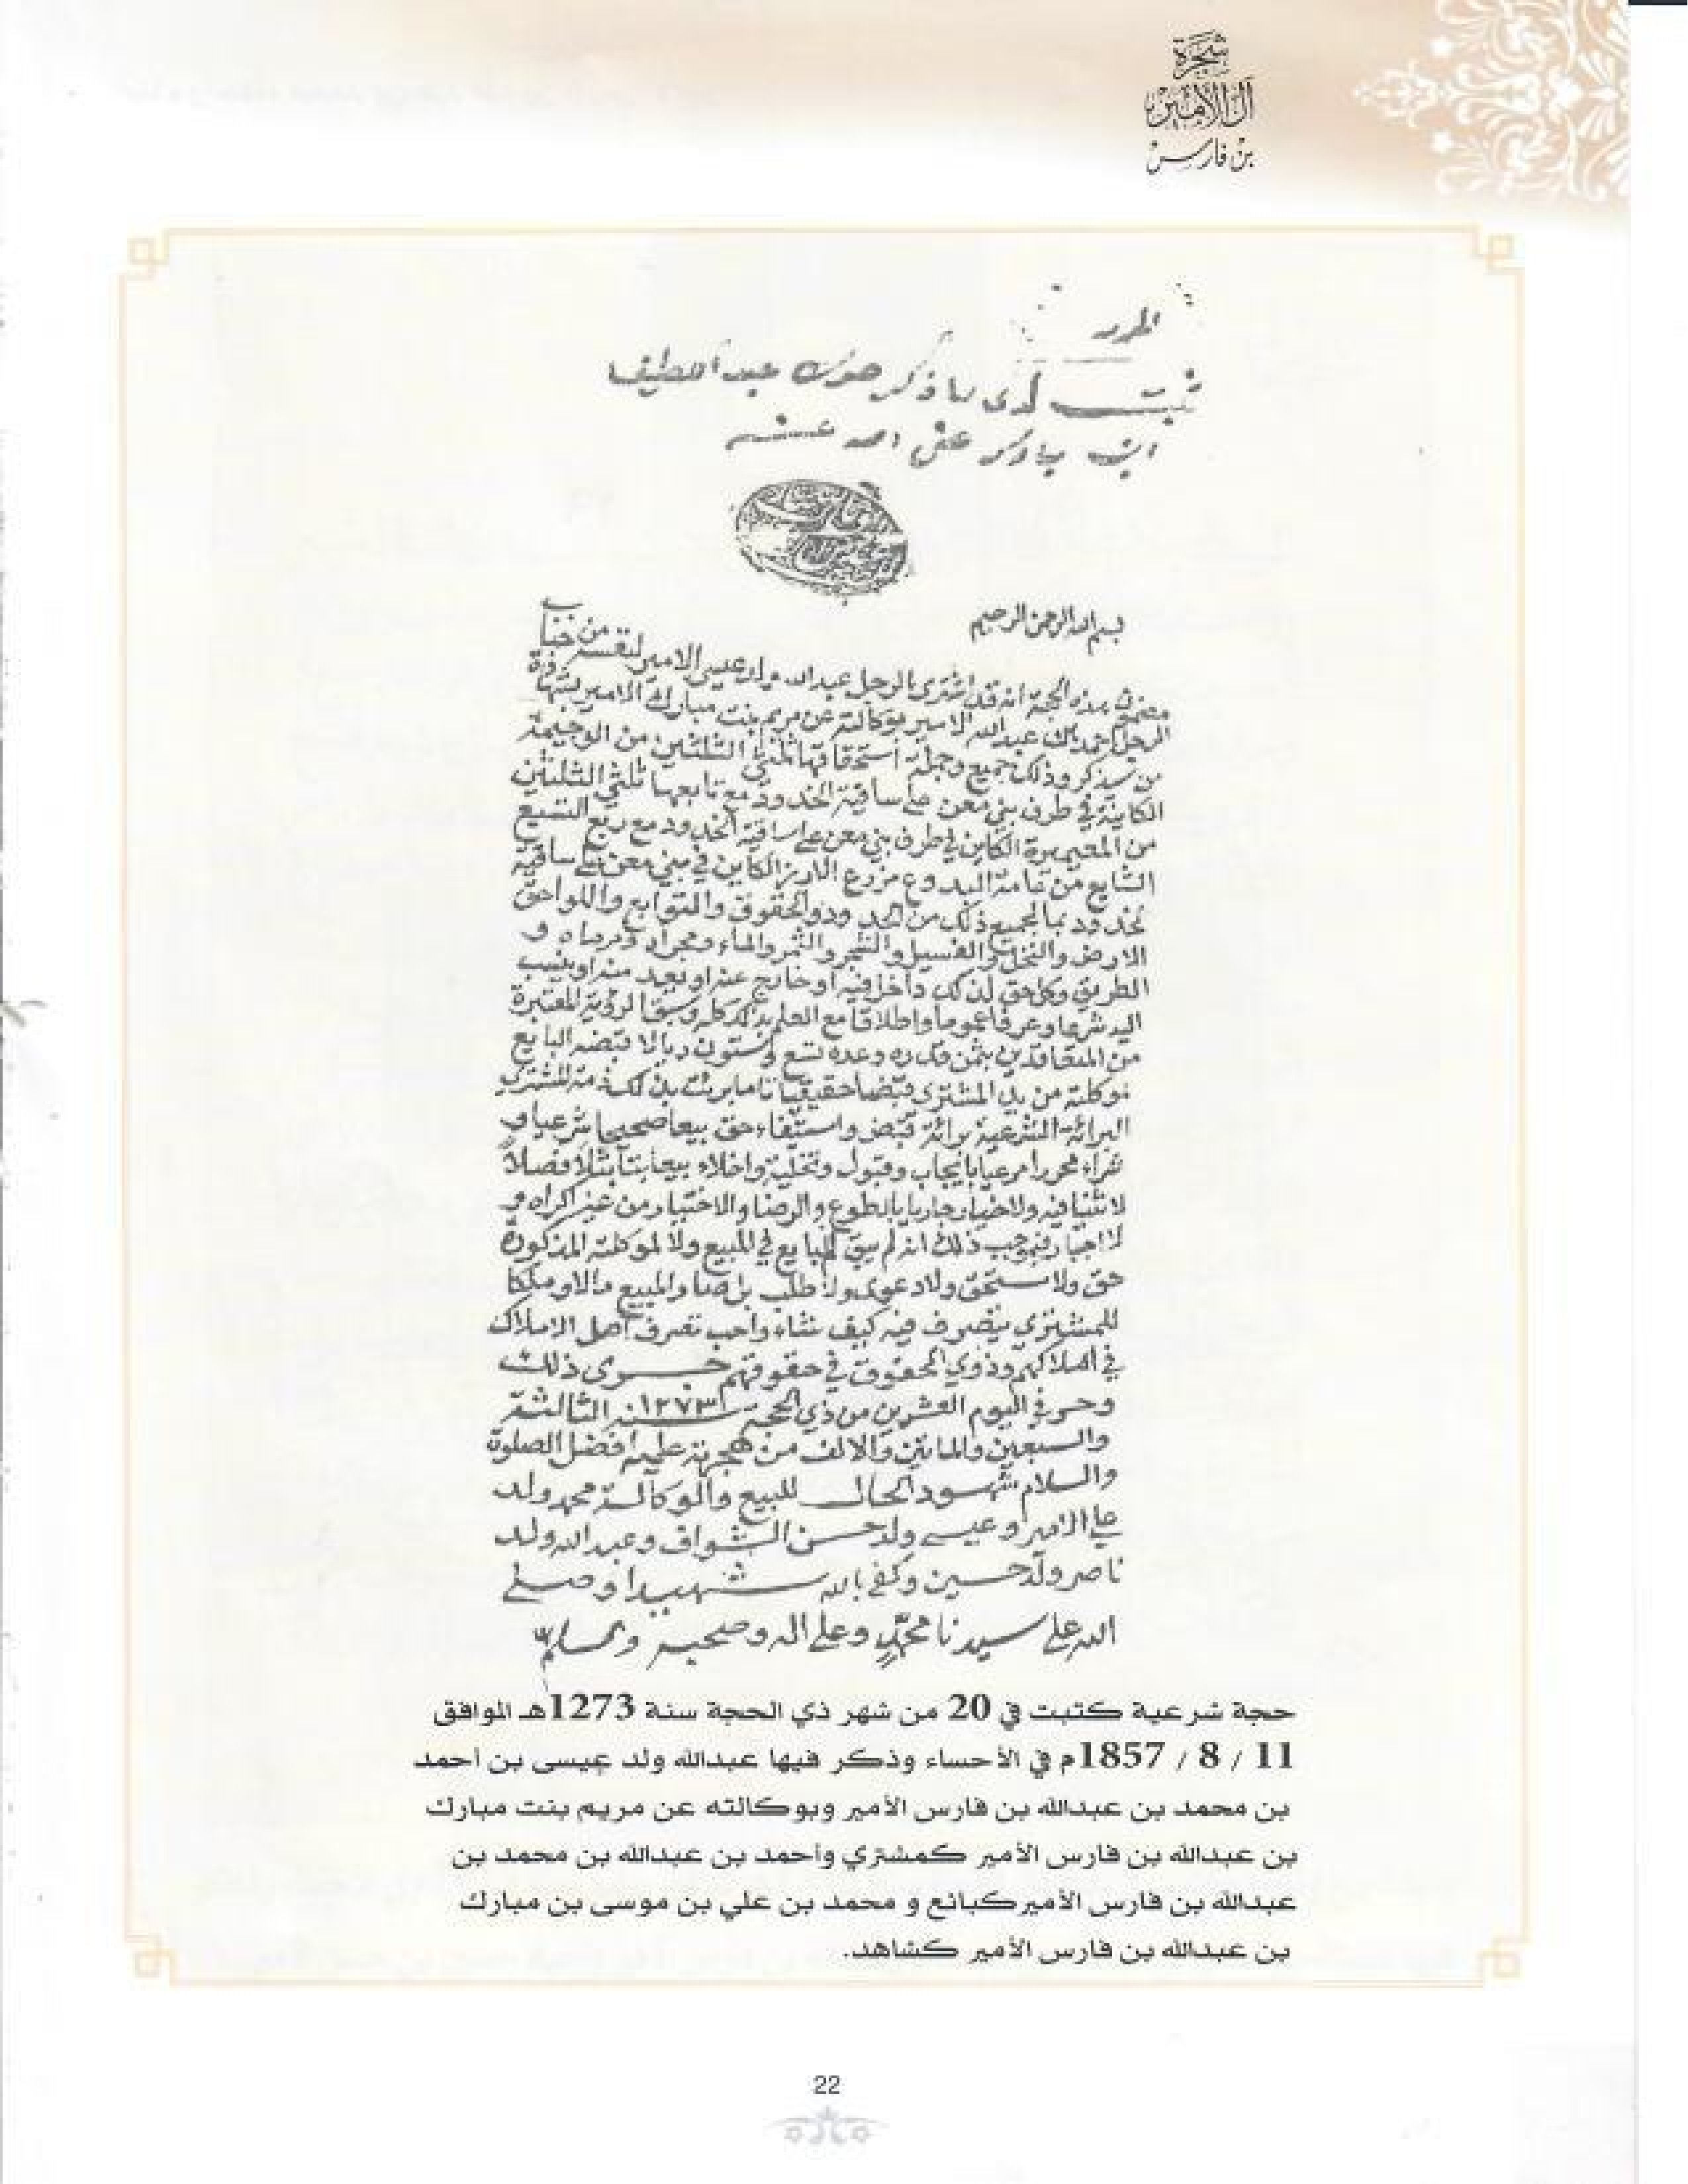 شجرة
آل الأمير
بن فارس
ثبت لدي ما ذكر حرره عبد اللطيف
ابن مبارك عفى الله عنه
بسم الله الرحمن الرحيم
مضمون هذه الحجة انه قد اشترى الرجل عبدالله ولد عيسى الامير لنفسه من جناب
الرجل احمد بن عبدالله الامير بوكالته عن مريم بنت مبارك الامير
من سيذكر وذلك جميع وجملة استحقاقها الثلثين من الوجيمة
الكاينة في طرف بني معن على ساقية الخدود مع تابعها ثلثي الثلثين
من الكاين في طرف بني معن على ساقية الخدود مع ربع التسيع
الشايع من مزرع الارز الكاين في بني معن على ساقية
الخدود بما لجميع ذلك من الحدود والحقوق والتوابع واللواحق
الارض والنخل والفسيل والشجر والثمر والماء ومجراه ومرماه و
الطريق وكل حق لذلك داخل فيه او خارج عنه او بعد منه او ينسب
اليه شرعا وعرفا عموما واطلاقا مع العلم بذلك كله وسبق الرؤية المعتبرة
من المتعاقدين بثمن قدره وعده تسع وستون ريالا قبضه البايع
لموكلته من يد المشتري قبضا حقيقيا تاما برئت بذلك ذمة المشتري
البرائة الشرعية برائة قبض واستيفاء حق بيعا صحيحا شرعيا و
شراء محررا مرعيا بايجاب وقبول وتخلية واخلاء بيعا بتا بتلا فصلا
لا ثنيا فيه ولا خيار جاريا بالطوع والرضا والاختيار من غير اكراه و
لا اجبار فبموجب ذلك انه لم يبق للبايع في المبيع ولا لموكلته المذكورة
حق ولا مستحق ولا دعوى ولا طلب بل صار المبيع مالا وملكا
للمشتري يتصرف فيه كيف شاء واحب تصرف اهل الاملاك
في املاكهم وذوي الحقوق في حقوقهم جرى ذلك
وحرر في اليوم العشرين من ذي الحجة سنة ١٢٧٣ الثالثة
والسبعين والماتين والالف من هجرته عليه افضل الصلوة
والسلام شهود الحال للبيع والوكالة محمد ولد
علي الامير وعيسى ولد حسن الشواف وعبدالله ولد
ناصر ولد حسين وكفى بالله شهيدا وصلى
الله على سيدنا محمد وعلى اله وصحبه وسلم
حجة شرعية كتبت في 20 من شهر ذي الحجة سنة 1273هـ الموافق
11 / 8 / 1857م في الأحساء وذكر فيها عبدالله ولد عيسى بن أحمد
بن محمد بن عبدالله بن فارس الأمير وبوكالته عن مريم بنت مبارك
بن عبدالله بن فارس الأمير كمشتري وأحمد بن عبدالله بن محمد بن
عبدالله بن فارس الأمير كبائع و محمد بن علي بن موسى بن مبارك
بن عبدالله بن فارس الأمير كشاهد.
22